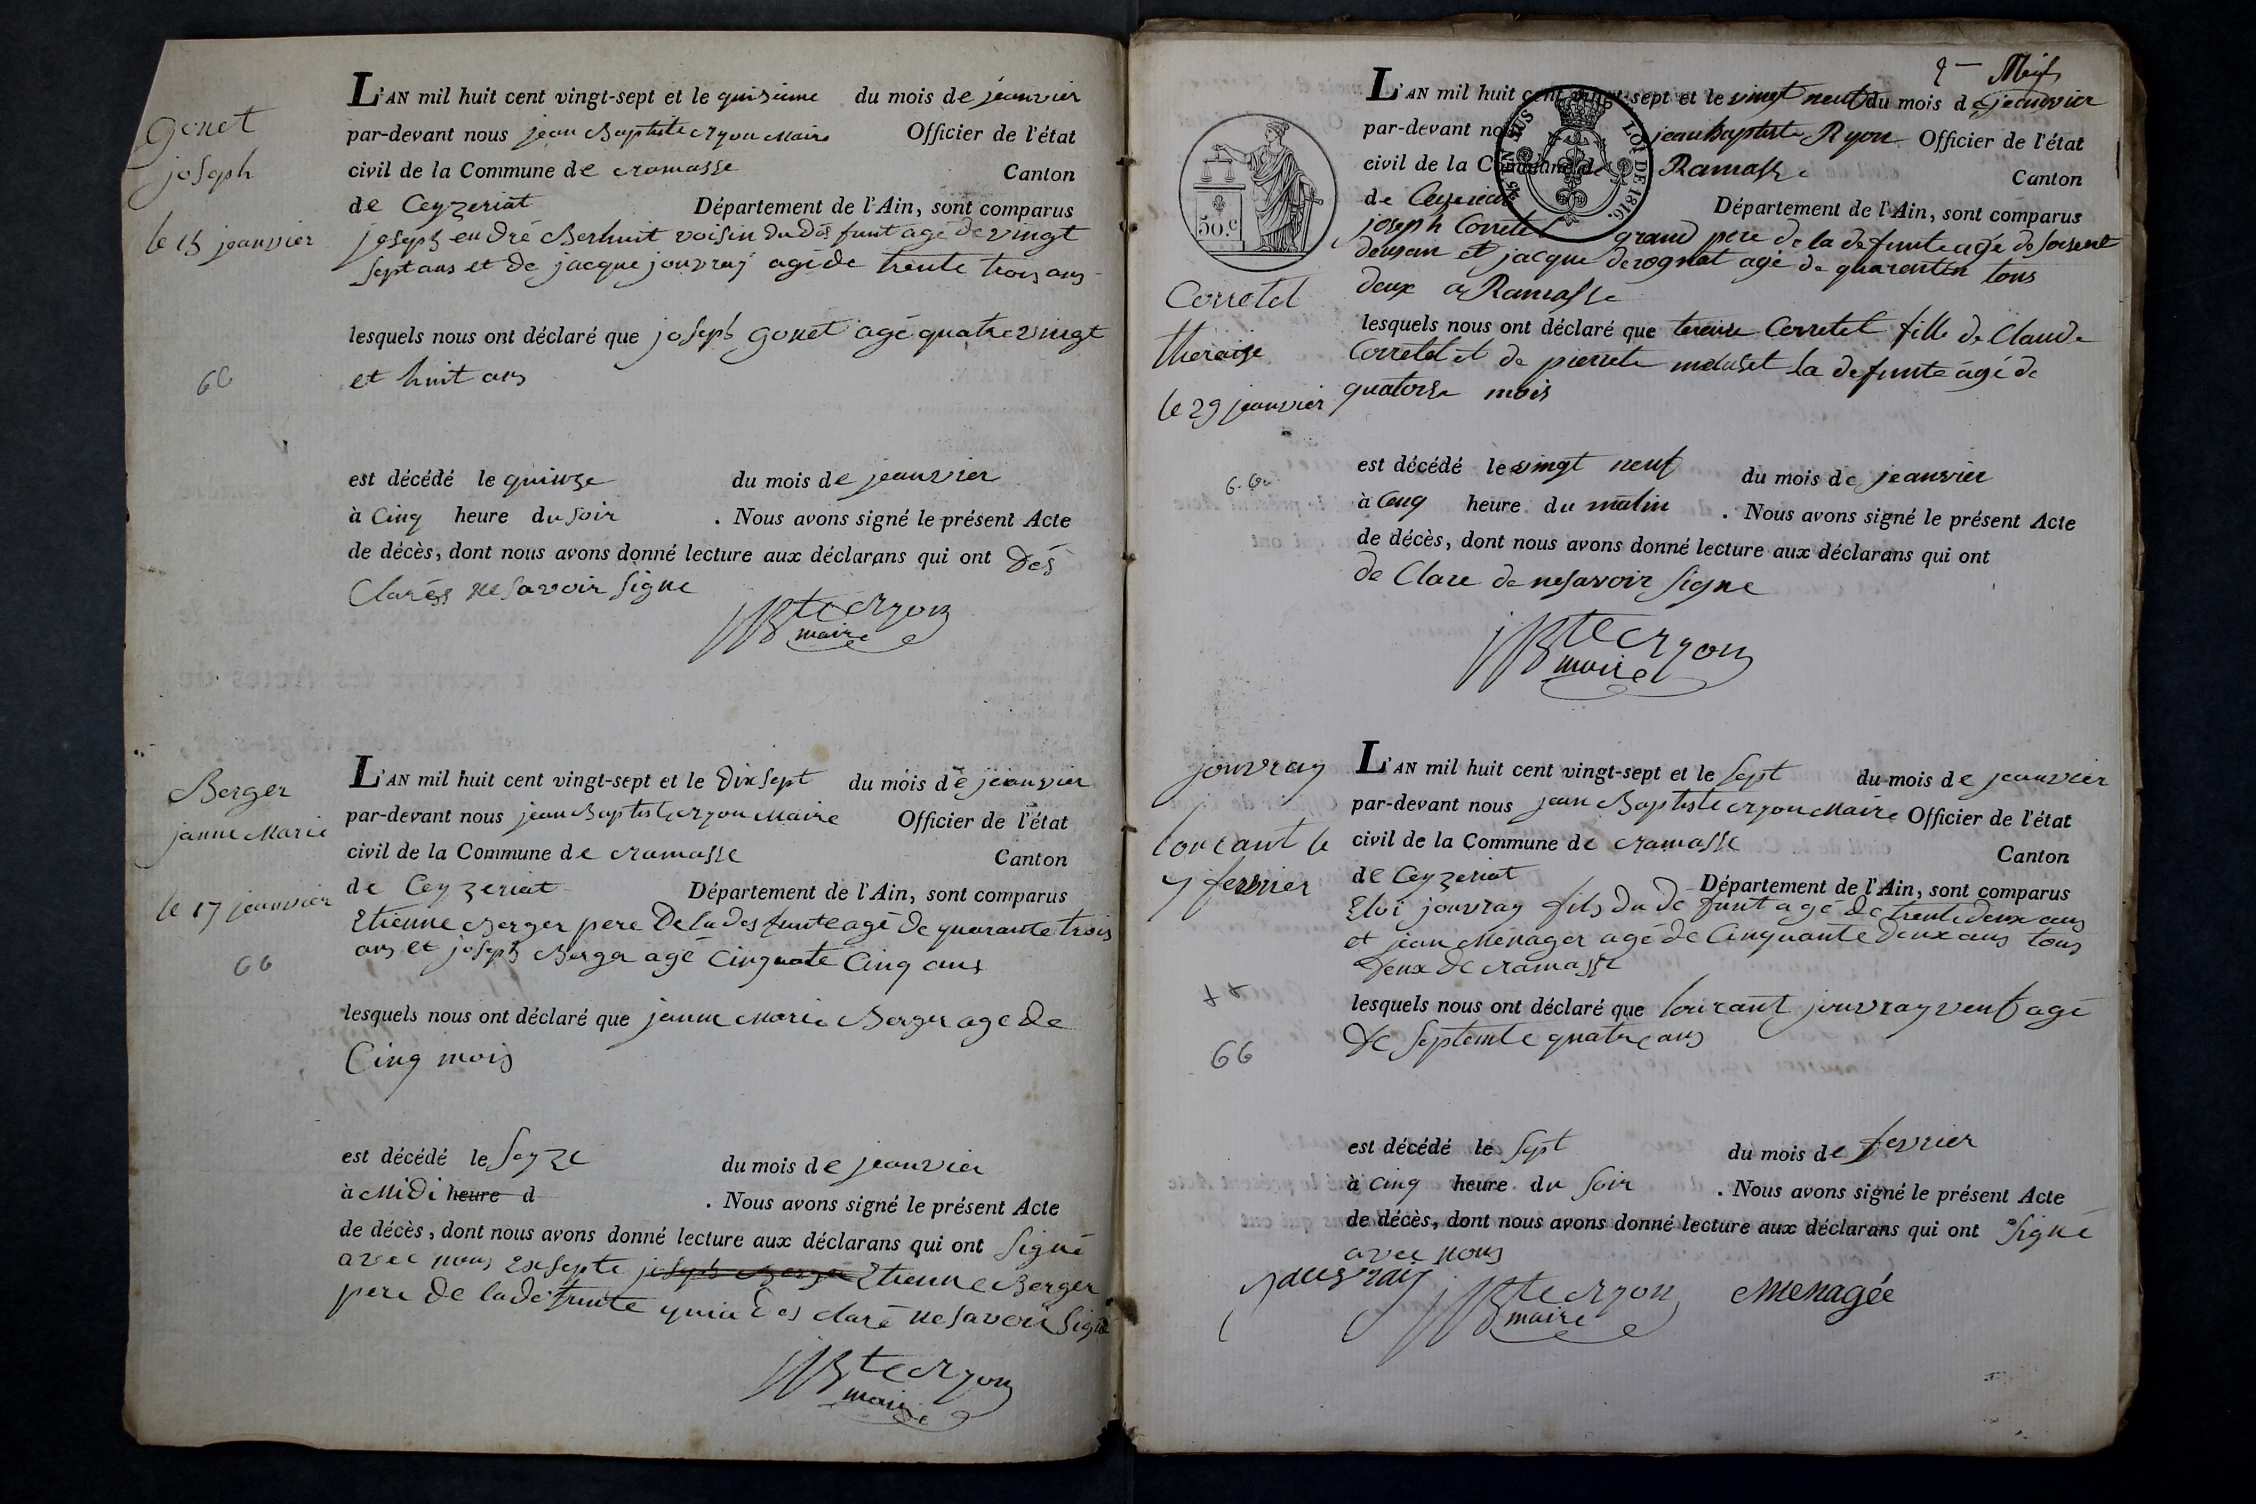 gonet
joseph
le 15 jeanvier
66
L'AN mil huit cent vingt-sept et le quisieme du mois de jeanvier
par-devant nous jean Baptiste Ryon Maire Officier de l'état
civil de la Commune de ramasse Canton
de Ceyzeriat Département de l'Ain, sont comparus
joseph endré Berhuit voisin du des funt age de vingt
sept ans et de jacque jouvray age de trente trois ans
lesquels nous ont déclaré que joseph gonet agé quatre vingt
et huit ans
est décédé le quinze du mois de jeanvier
à Cinq heure du soir . Nous avons signé le présent Acte
de décès, dont nous avons donné lecture aux déclarans qui ont Dés
Clarés ne savoir signe
JBte Ryon
maire
Berger
janne Marie
le 17 jeanvier
66
L'AN mil huit cent vingt-sept et le Dix sept du mois de jeanvier
par-devant nous jean Baptiste Ryon Maire Officier de l'état
civil de la Commune de ramasse Canton
de Ceyzeriat Département de l'Ain, sont comparus
Etienne Berger pere De la des funte agé De quarante trois
ans et joseph Berger agé Cinquate Cinq ans
lesquels nous ont déclaré que janne Marie Berger age de
Cinq mois
est décédé le seyze du mois de jeanvier
à Midi heure d . Nous avons signé le présent Acte
de décès, dont nous avons donné lecture aux déclarans qui ont signé
avec nous exsepte joseph Berger Etienne Berger
pere De la de funte qui a Des claré ne saveri signé
JBte Ryon
maire
2
50.C
LOI DE 1816.
Corretel
theraise
le 29 jeanvier
L'AN mil huit cent vingt-sept et le vingt neuf du mois de jeanvier
par-devant nous jean baptiste Ryon Officier de l'état
civil de la Commune de Ramasse Canton
de Ceyzeriat Département de l'Ain, sont comparus
joseph Corretel grand pere de la defunte agé de soisent
deusan et jacque derognat agé de quarentin tous
deux a Ramasse
lesquels nous ont déclaré que teraise Corretel fille de Claude
Corretel et de pierrete la defunte âgé de
quatorse mois
est décédé le vingt neuf du mois de jeanvier
à Cenq heure du matin . Nous avons signé le présent Acte
de décès, dont nous avons donné lecture aux déclarans qui ont
de Clare de nesavoir signe
JBte Ryon
maire
jouvray
lourant le
7 fevrier
66
L'AN mil huit cent vingt-sept et le sept du mois de jeanvier
par-devant nous jean Baptiste Ryon Maire Officier de l'état
civil de la Commune de ramasse Canton
de Ceyzeriat Département de l'Ain, sont comparus
Eloi jouvray fils du de funt agé de trente deux ans
et jean Menager agé de Cinquante deux ans tous
deux de ramasse
lesquels nous ont déclaré que lourant jouvray veuf agé
de septente quatre ans
est décédé le sept du mois de fevrier
à cinq heure du soir . Nous avons signé le présent Acte
de décès, dont nous avons donné lecture aux déclarans qui ont signé
avec nous
JBte Ryon Menagée
maire